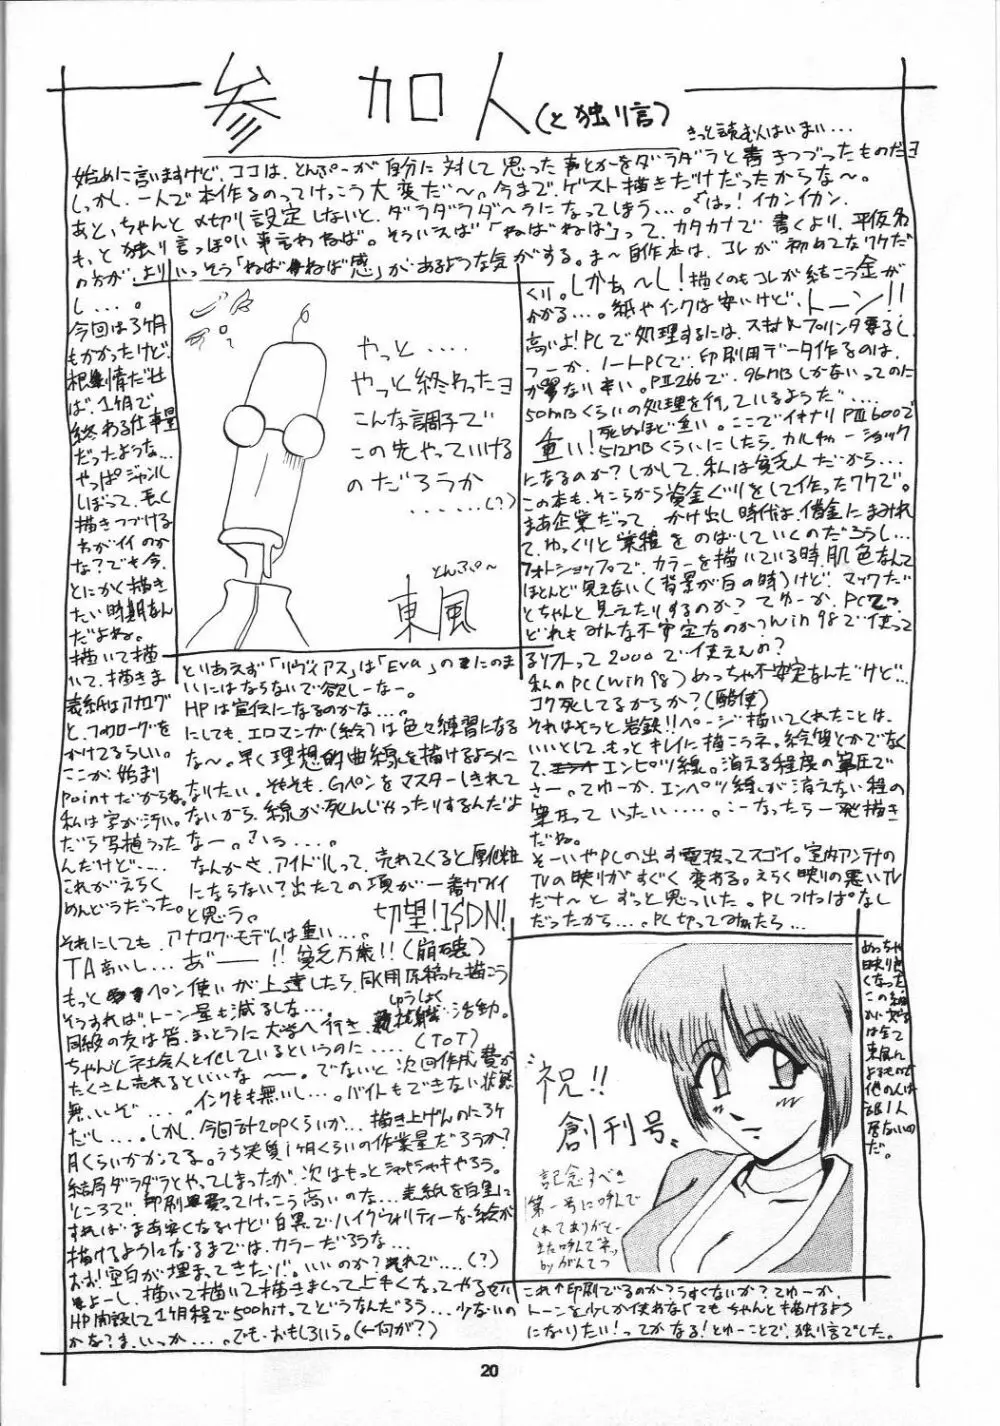 参加人(と独り言)
きっと読む人はいまい…
始めに言いますけど、ココは、とんぷーが自分に対して思った事とかをダラダラと書きつづったものだヨ
しかし、一人で本作るのってけっこう大変だ〜。今まで、ゲスト描きだけだったからな〜。
あと、ちゃんと〆切り設定しないと、ダラダラダ〜ラになってしまう…。はっ!イカンイカン、
もっと独り言っぽい事言わねば。そういえば「ねばねば」って、カタカナで書くより、平仮名
の方が、よりいっそう「ねばねば感」があるような気がする。ま〜自作本は、コレが初めてなワケだ
し…。
今回は3ヶ月
もかかったけど、
根性情だせ
ば、1ヶ月で
終わる仕事量
だったような…
やっぱジャンル
しぼって、長く
描きつづける
方がイイのか
な?でも今、
とにかく描き
たい時期なん
だよね。
描いて描
いて、描きま
表紙はアナログ
と、フォローグを
かけてるらしい。
ここが、始まり
pointだからね。
私は字が汚い。
だら写植うった
んだけど…
これがえらく
めんどうだった。
やっと‥‥
やっと終わったヨ
こんな調子で
この先やっていける
のだろうか
‥‥‥(?)
とんぷ〜
東風
とりあえず「リヴァイアス」は「Eva」の二のま
いにはならないで欲しーなー。
HPは宣伝になるのかな…。
にしても、エロマンガ(絵)は色々練習になる
な〜。早く理想的曲線を描けるように
なりたい。そもそも、Gペンをマスターしきれて
ないから、線が死んじゃったりするんだよ
なー。さいぅ‥‥。
なんかさ、アイドルって、売れてくると厚化粧
にならない?出たての頃が一番カワイイ
と思う。
切望!ISDN!
それにしても、アナログ・モデムは重い…。
TA高いし…あ゛ー!!貧乏万歳!!(崩壊)
もっとペン使いが上達したら、同用原稿に描こう
そうすれば、トーン量も減るしな…。
同級の友は皆、まっとうに大学へ行き、就職活動。
しゅうしょく
ちゃんと社会人と化しているというのに‥‥(ToT)
たくさん売れるといいな〜。でないと次回作成費が
無いぞ…。インクも無いし…。バイトもできない状態
だし…。しかし、今回計20Pくらいか…描き上げんのに3ヶ
月くらいかかってる。うち実質1ヶ月くらいの作業量だろうか?
結局ダラダラとやってしまったが、次はもっとシャキシャキやろう。
ところで、印刷って、けっこう高いのな…表紙を白黒に
すればまあ安くなるけど白黒でハイクヴォリティーな絵が
描けるようになるまでは、カラーだろうな…
おお!空白が埋まってきたゾ。いいのか?それで…(?)
よーし、描いて描いて描きまくって上手くなってやるぜい
HP開設して1ヶ月程で500hitってどうなんだろう…少ないの
かな?ま、いっか…。でも、おもしろいう。(←何が?)
くり。しかぁ〜し!描くのもコレが結こう金が
かかる…。紙やインクは安いけど、トーン!!
高いよ!PCで処理するには、スキャナ、プリンタ要るし、
つーか、ノートPCで、印刷用データ作るのは、
が異ない辛い。PⅡ266で、96MBしかないってのに
50MBくらいの処理を行っているようだ…
死ぬほど重い。ここでイキナリPⅢ600で
重い!512MBくらいにしたら、カルチャーショック
になるのか?しかして、私は貧乏人だから…
この本も、そこらから資金ぐりをして作ったワケで。
まあ企業だって、かけ出し時代は、借金にまみれ
て、ゆっくりと業種をのばしていくのだろうし…
フォトショップで、カラーを描いている時、肌色なんて
ほとんど見えない(背景が白の時)けど、マックだ
とちゃんと見えたりするのか?てゆーか、PCって
どれもみんな不安定なのか?Win98で使って
るソフトって2000で使えんの?
私のPC(Win98)めっちゃ不安定なんだけど…
コク死してるからか?(酷使)
それはそうと岩鉄!!ページ描いてくれたことは、
いいとして、もっとキレイに描こうネ。絵質とかでなく
て、エンピツ線。消える程度の筆圧で
さー。てゆーか、エンペツ線が消えない程の
筆圧っていったい‥‥。こーなったら一発描き
だね。
そーいやPCの出す電波ってスゴイ。室内アンテナの
TVの映りがすぐく変わる。えらく映りの悪いTV
だナ〜とずっと思っていた。PCつけっぱなし
だったから…。PC切ってみたら…
めっちゃ
映り良
くなった
は全て
東風ん
他の人は
部1人
居ないの
だ。
祝!!
創刊号。
記念すべき
第一号に呼んで
くれてありがとー
また呼んでネッ
byがんてつ
これ↑印刷でるのか?うすくないか?てゆーか、
トーンを少しか使わなくてもちゃんと描けるよう
になりたい!ってかなる!とゆーことで、独り言でした。
20